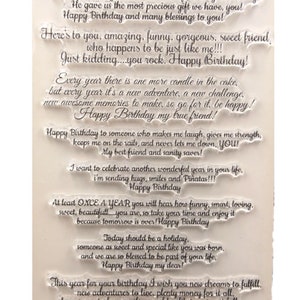 He gave us the most precious gift we have, you!
Happy Birthday and many blessings to you!
Here's to you, amazing, funny, gorgeous, sweet friend
who happens to be just like me!!!
Just kidding...you rock. Happy Birthday!
Every year there is one more candle in the cake,
but every year it's a new adventure, a new challenge,
new awesome memories to make, so go for it, be happy!
Happy Birthday my true friend!
Happy Birthday to someone who makes me laugh, gives me strength,
keeps me on the rails, and never lets me down, YOU!
My best friend and sanity saver!
I want to celebrate another wonderful year in your life,
i'm sending hugs, smiles and Piñatas!!!
Happy Birthday
At least ONCE A YEAR you will hear how funny, smart, loving,
sweet, beautifull... you are, so take your time and enjoy it
because tomorrow is over! Happy Birthday
Today should be a holiday,
someone as sweet and special like you was born,
and we are so blessed to be part of your life.
Happy Birthday my dear!
This year for your birthday I wish you new dreams to fulfill,
new adventures to live, plenty money for it all,